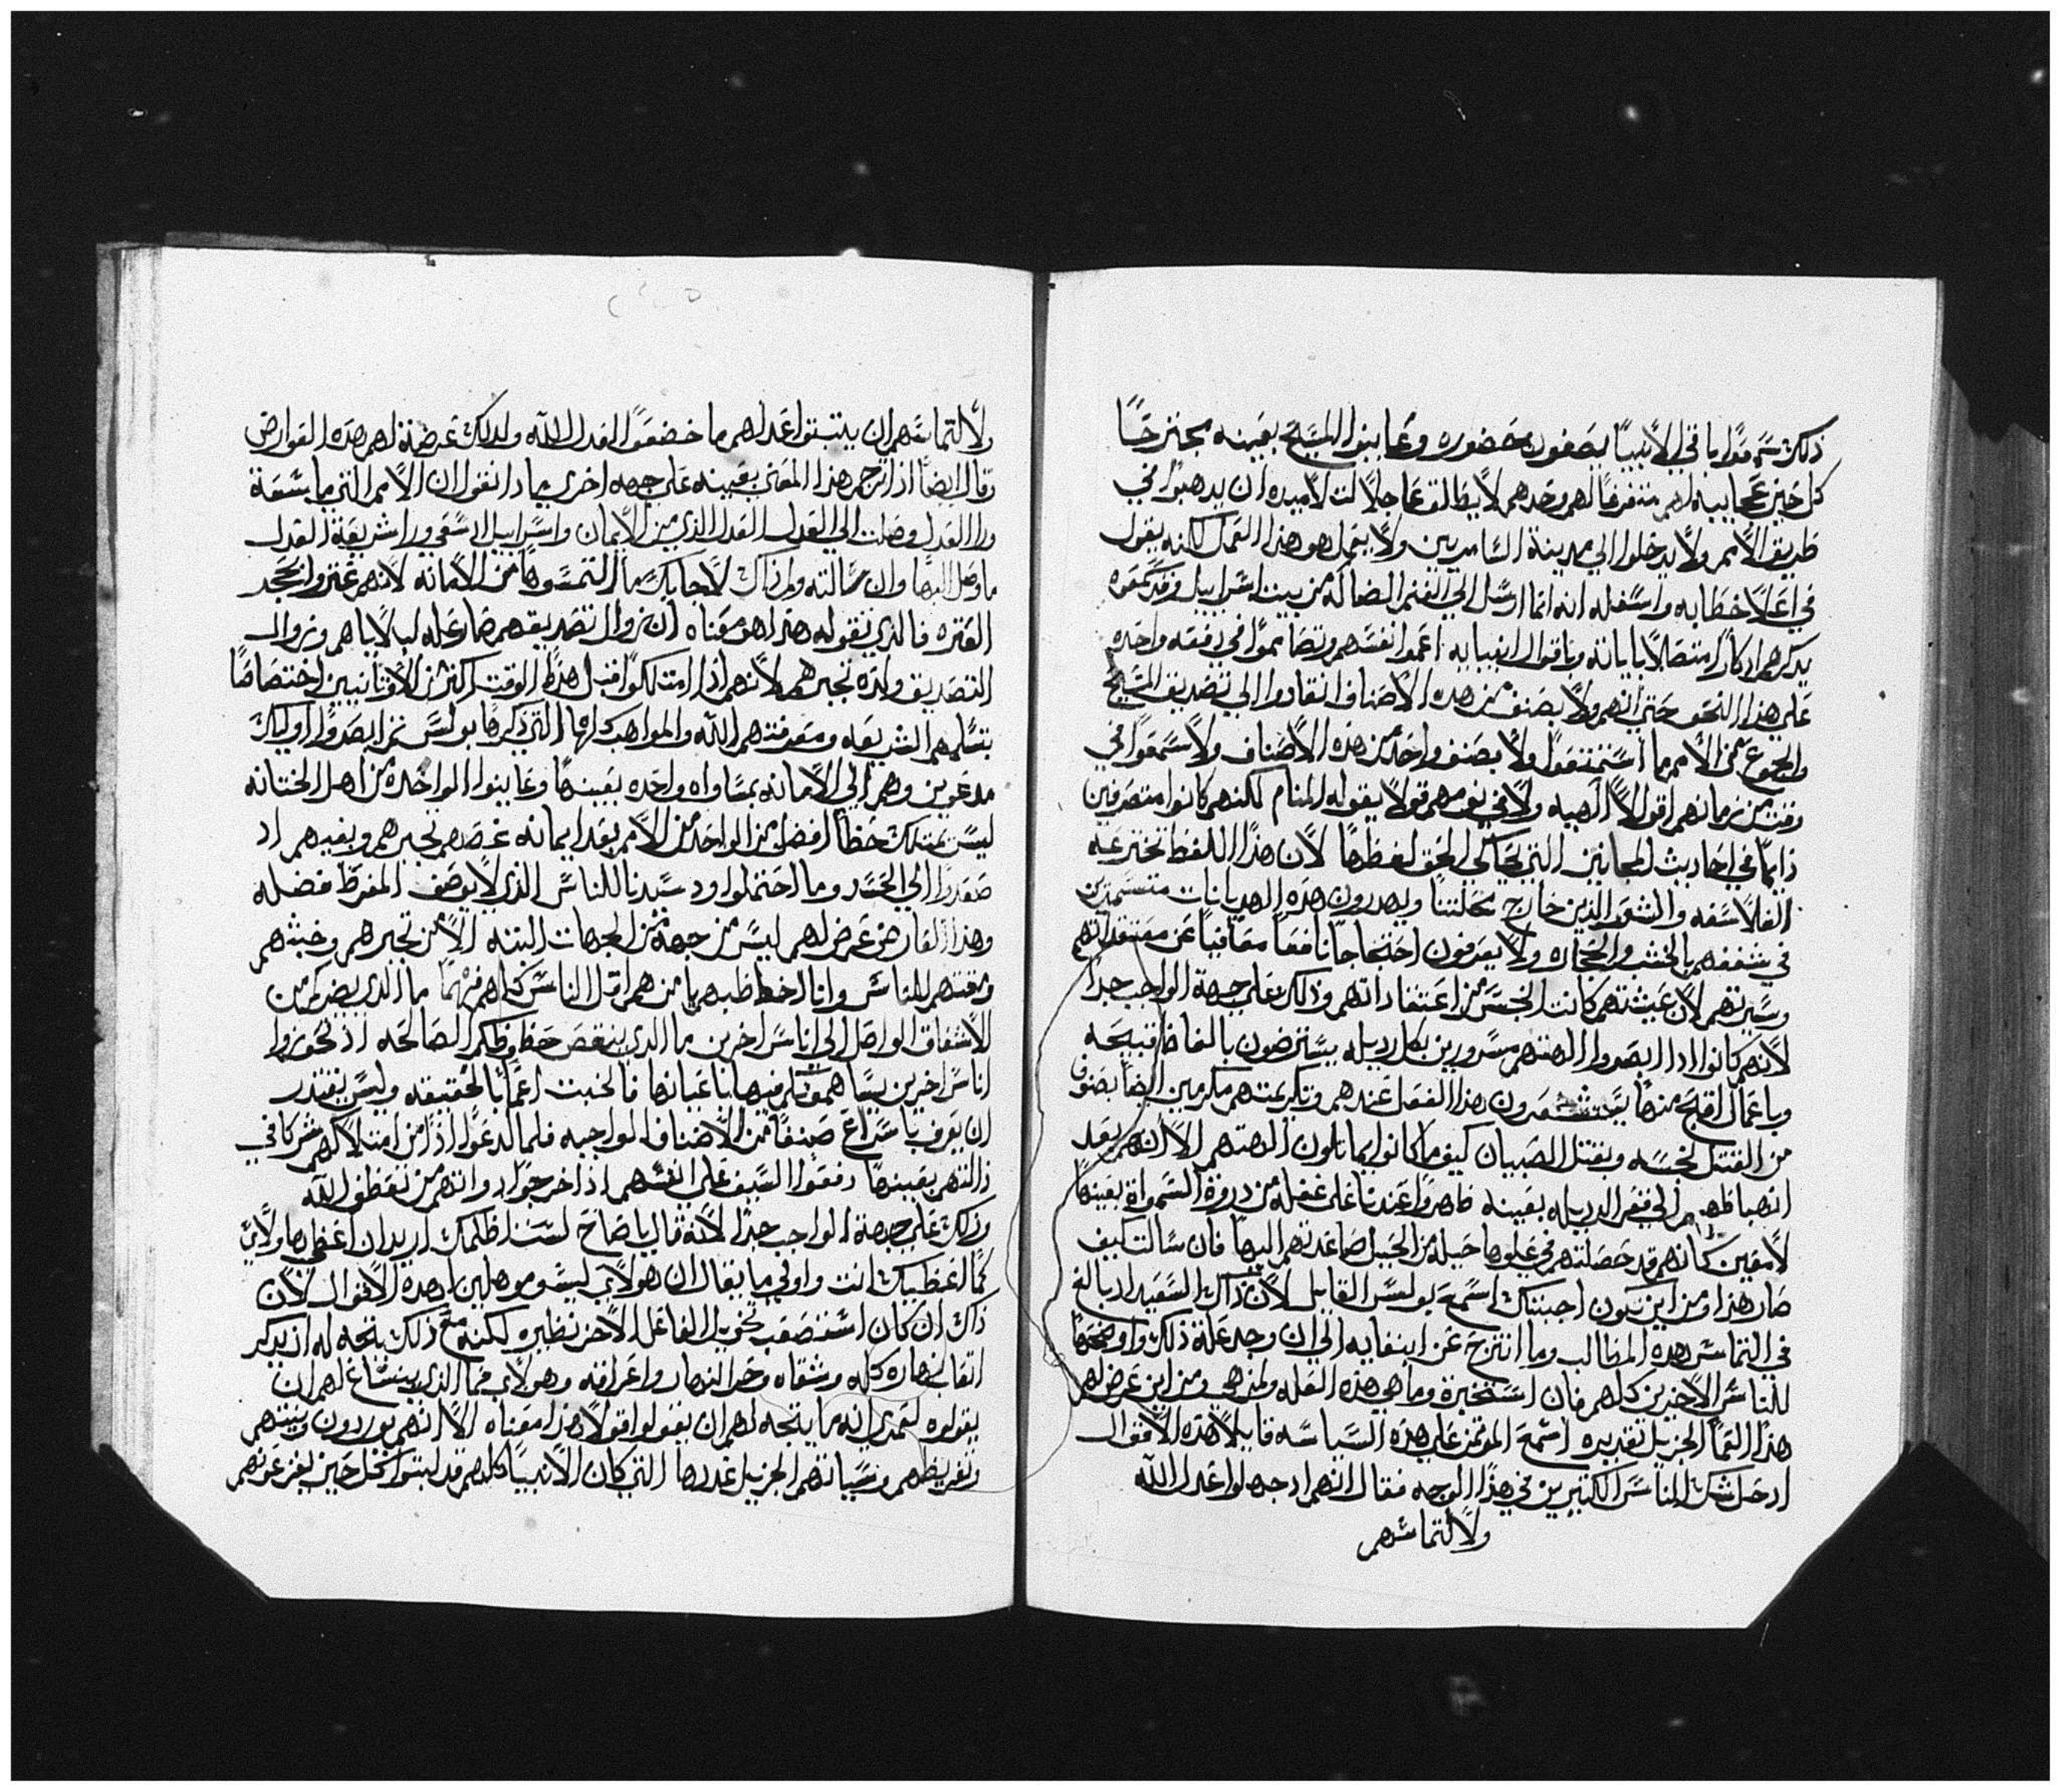 ذلك سمعوا باقي الانبيا يصفون حضوره وعاينوا المسيح بعينه يجترح
كل حين عجايبه لهم متفرغا لهم وحدهم لا يطالق عاجلا لتلاميده ان يدهبوا في
طريق الامم ولا يدخلوا الي مدينة السامريين ولا يعمل هو هذا العمل لكنه يقول
في اعلا خطابه واسفله انه انما ارسل الي الغنم الضاله من بيت اسراييل
يدكرهم ادكارا متصلا باياته وباقوال انبيايه اعموا انفسهم وتصاموا في دفعه واحده
علي هذا النحو حتي انهم ولا بصنف من هده الاصناف انقادوا الي تصديق المسيح
والجموع من الامم ما استمتعوا ولا بصنف واحد من هذه الاصناف ولا سمعوا في
وقت من زمانهم اقوالا الهيه ولا في نومهم قولا يقوله المنام لكنهم كانوا متصرفين
دايما في احاديث المجانين التي يحاكي الحق لفظها لان هذا اللفظ تخترعه
الفلاسفه والشعرا الذين خارج نحلتنا ويهدرون هده الهديانات متسمرين
في شغفهم بالخشب والحجاره ولا يعرفون احتجاجا نافعا معافيا عن معتقداتهم
وسيرتهم لان عيشتهم كانت انجس من اعتقاداتهم وذلك علي جهة الواجب جدا
لانهم كانوا اذا ابصروا الهتهم مسرورين بكل رديله يسترضون بالفاظ قبيحه
وباعمال اقبح منها يستشعرون هذا الفعل عندهم وتكريمتهم مكرمين ايضا بصنوف
من القتل نجسه وبقتل الصبيان كيف ما كانوا يماثلون الهتهم الا انهم بعد
انهباطهم الي قعر الرديله بعينه ظهروا عندنا علي غفله من دروة السمواة بعينها
لامعين كانهم قد حصلتهم في علوها حيله من الحيل صاعدتهم اليها فان سالت كيف
صار هذا ومن اين تكون اجبتك اسمع بولس القايل لان ذاك السعيد اد بالغ
في التماس هده المطالب وما انتزح عن ابتغايه الي ان وجد علة ذلك واوضحها
للناس الاخرين كلهم فان استخبرة وما هي هذه العله ولمن هي ومن اين عرض لهم
هذا العما الجزيل تقديره اسمع الموتمن علي هذه السياسه قايلا هذه الاقوال
ادحل شك الناس الكتيرين في هذا الوجه فقال انهم ادجهلوا عدل الله
ولالتماسهم
ولالتماسهم ان يثبتوا عدلهم ما خضعوا لعدل الله ولذلك عرضة لهم هده العوارض
وقال ايضا اذ ترجم هذا المعني بعينه علي جهه اخري بمادا نقول ان الامم التي ما سعة
ورا العدل وصلت الي العدل العدل الذي من الايمان واسراييل اد سعي ورا شريعة العدل
ما وصل اليها وان سالته ولم ذاك لاجابك لما التمسوها من الامانه لانهم عتروا بحجر
العتره فالذي نقوله هذا هو معناه ان زوال تصديقهم صار عله لبلاياهم وزوال
التصديق ولده تجبرهم لانهم اذ امتلكوا قبل هذا الوقت اكتر من الاوتانيين اختصاصا
بتسلمهم الشريعه ومعرفتهم الله والمواهب كلها التي ذكرها بولس تم ابصروا اوليك
مدعوين وهم الي الامانه بمساواه واحده بعينها وعاينوا الواحد من اهل الختانه
ليس يمتلك حظا افضل من الواحد من الامم بعد ايمانه غصهم تجبرهم وبغيهم اد
صعدوا الي الحسد وما احتملوا ود سيدنا للناس الذي لا يوصف المفرط فضله
وهذا العارض عرض لهم ليس من جهة من الجهات البته الا من تجبرهم وخبتهم
ومقتهم للناس وانا اخاطبهم يا من هم اقل الناس كلهم فهما ما الذي يضركم من
الاشفاق الواصل الي اناس اخرين ما الدي ينقص حظوظكم الصالحه اذ تحوزوا
اناسا اخرين يساهموكم فيها باعيانها فالخبت اعما بالحقيقه وليس يقتدر
ان يعرف باسراع صنفا من الاصناف الواجبه فلما لدعوا اذا من امتلاكهم شركا في
ذالتهم بعينها دفعوا السيف علي انفسهم اذ اخرجوا دوانهم من تعطف الله
وذلك علي جهة الواجب جدا لانه قال يا صاح لست اظلمك اريد ان اعطي هاولاي
كما اعطيتك انت واولي ما يقال ان هولاي ليسو موهلين لهده الاقوال لان
ذاك ان كان استصعب تخويل الفاعل الاخر نظيره لكنه مع ذلك يتجه له ان يدكر
اتعاب نهاره كله ومشقاه وحر النهار واعراقه وهولاي فما الذي ينشاغ لهم ان
يقولوه لعمري انه ما يتجه لهم ان يقولوا قولا هذا معناه الا انهم يوردون ونيتهم
وتفريطهم وسياتهم الجزيل قدرها التي كان الانبيا كلهم قد لبتوا كل حين يقرعونهم